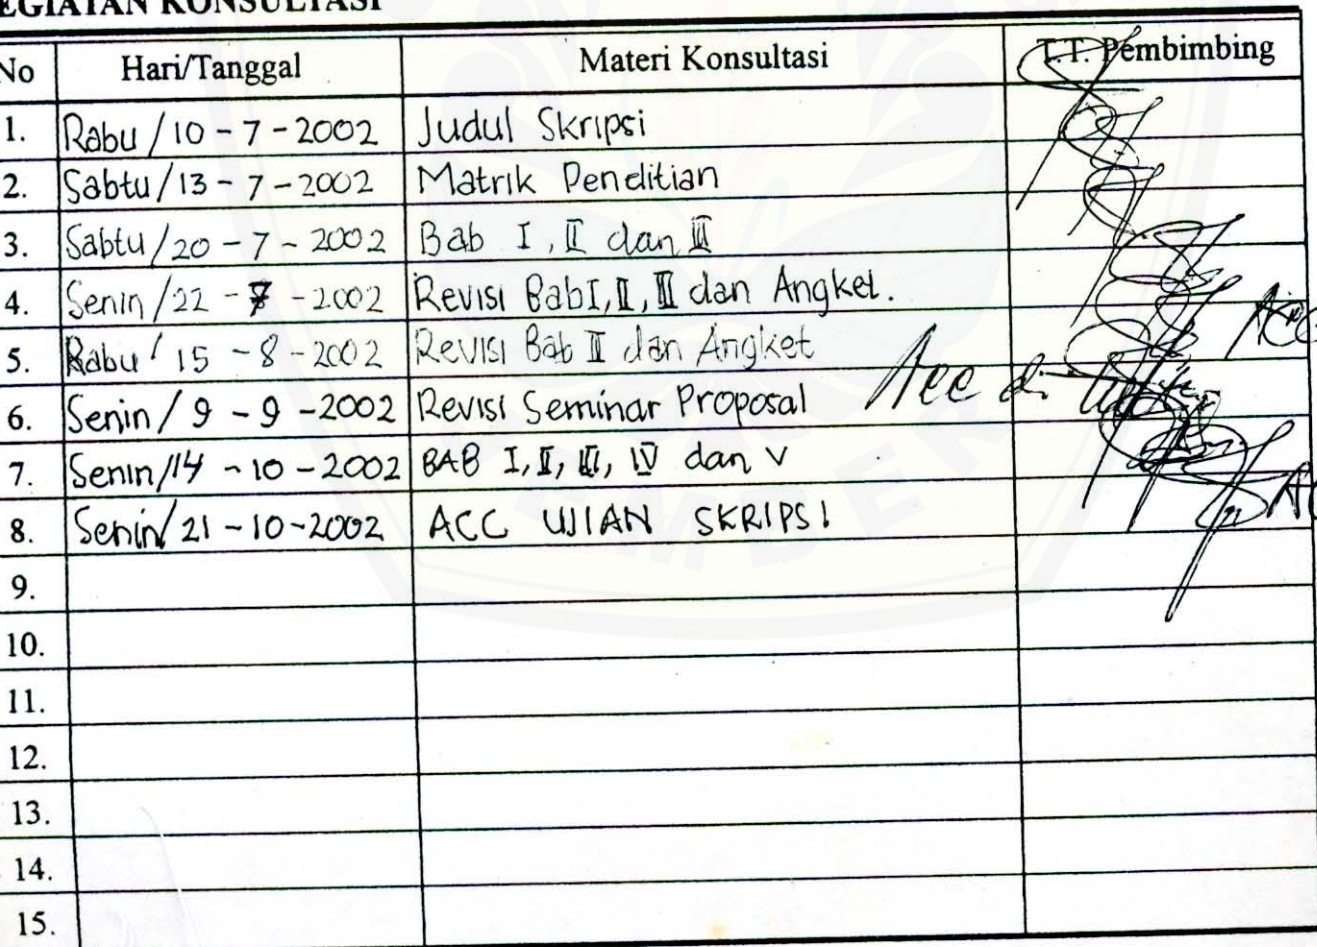 EGIATAN KONSULTASI
No Hari/Tanggal Materi Konsultasi T.T. Pembimbing
1. Rabu / 10 - 7 - 2002 Judul Skripsi
2. Sabtu / 13 - 7 - 2002 Matrik Penelitian
3. Sabtu / 20 - 7 - 2002 Bab I, II dan III
4. Senin / 22 - 7 - 2002 Revisi Bab I, II, III dan Angket.
5. Rabu / 15 - 8 - 2002 Revisi Bab II dan Angket
Acc di
6. Senin / 9 - 9 - 2002 Revisi Seminar Proposal
7. Senin / 14 - 10 - 2002 BAB I, II, III, IV dan V
8. Senin / 21 - 10 - 2002 ACC UJIAN SKRIPSI
9.
10.
11.
12.
13.
14.
15.